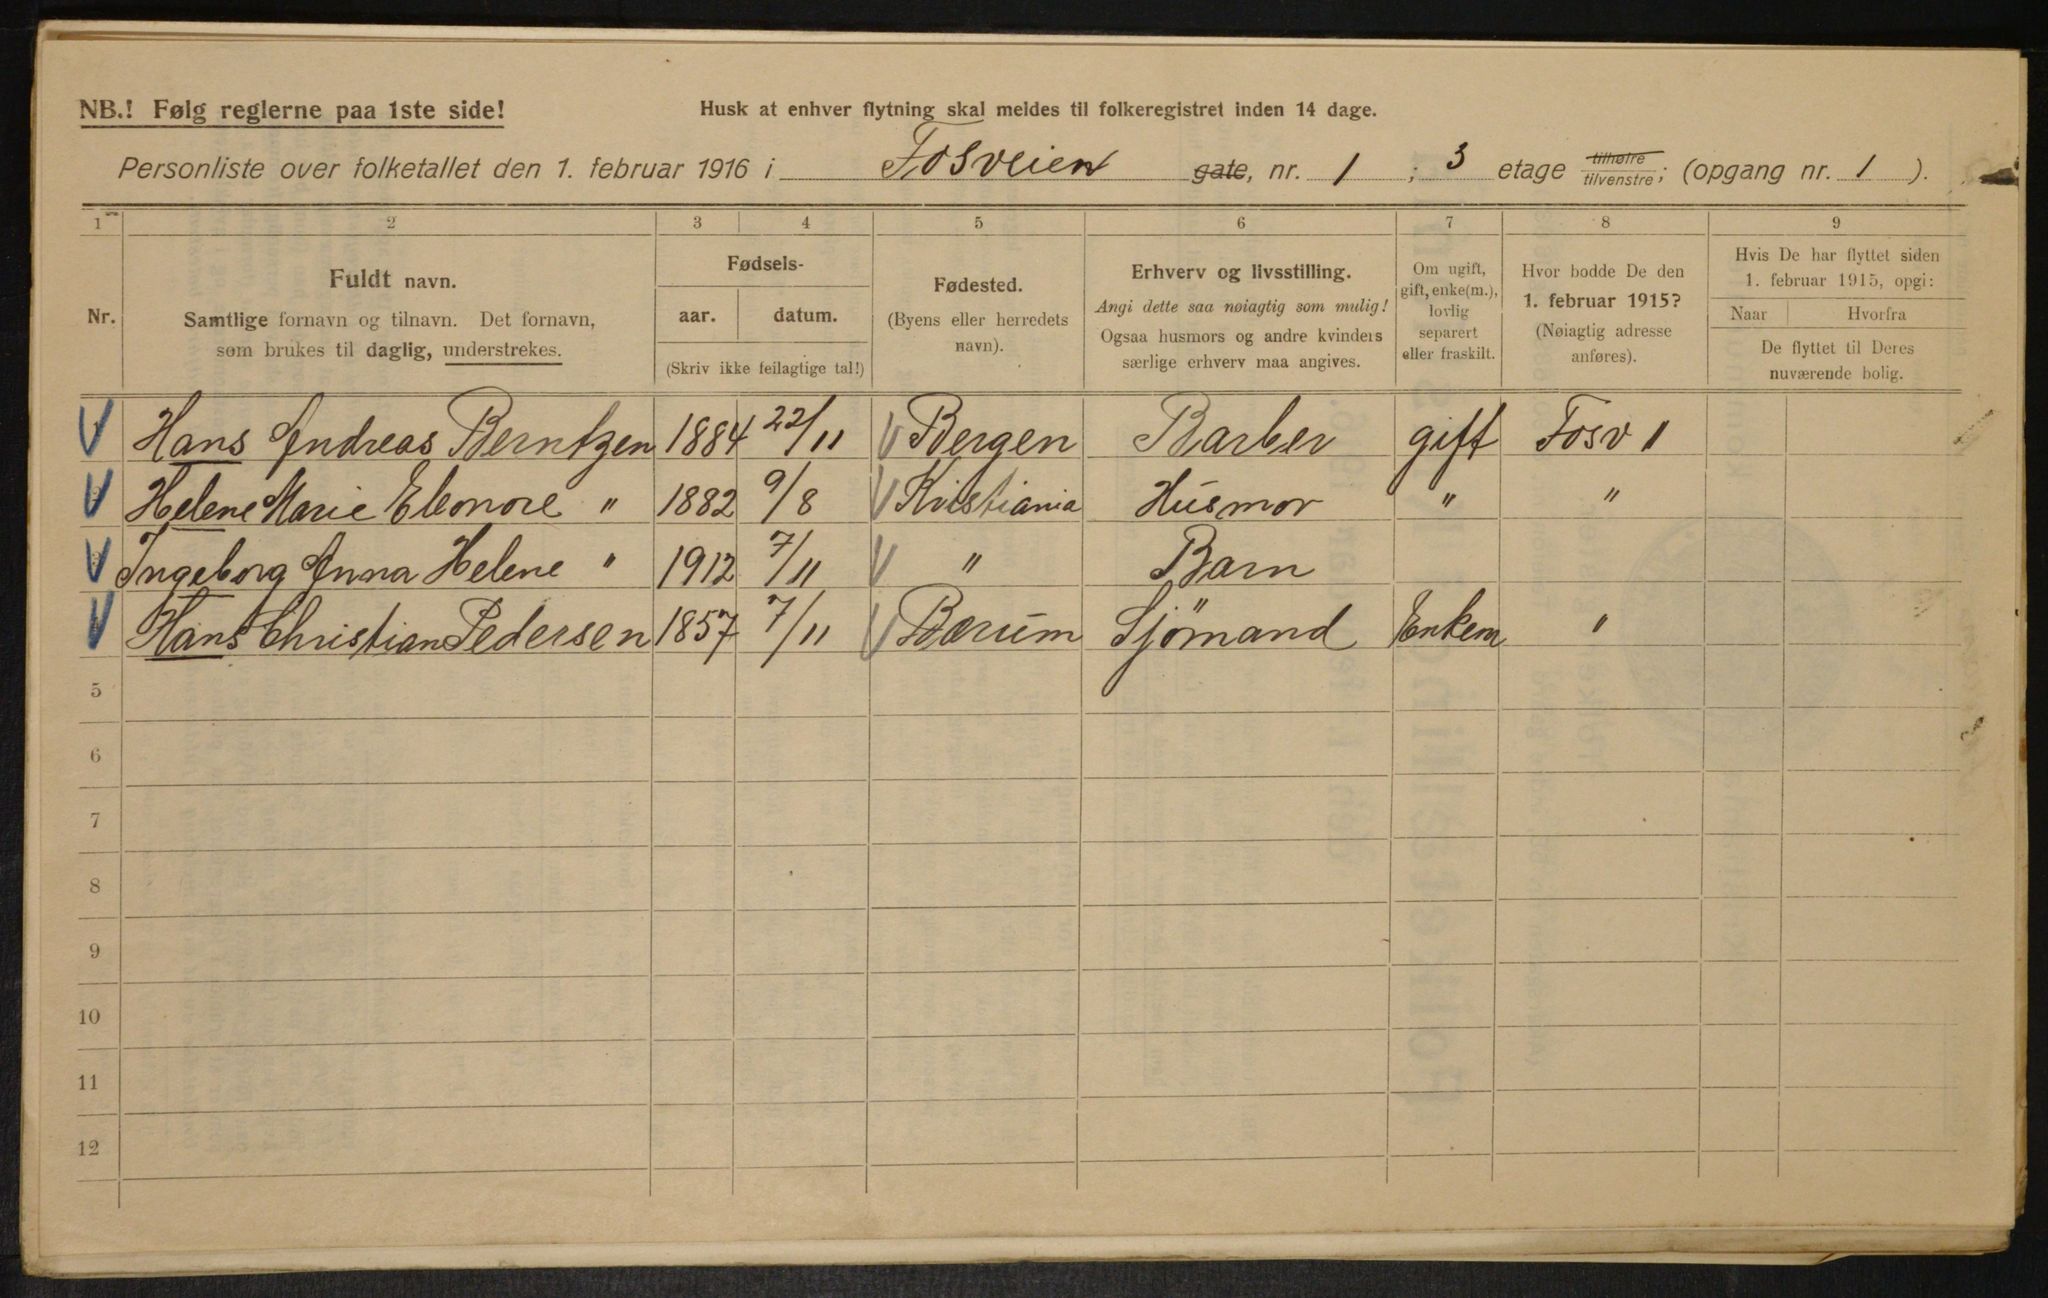 NB.! Følg reglerne paa 1ste side!
Husk at enhver flytning skal meldes til folkeregistret inden 14 dage.
Personliste over folketallet den 1. februar 1916 i Fosveien gate, nr. 1 ; 3 etage tilhøire/tilvenstre; (opgang nr. 1 ).
1 2 3 4 5 6 7 8 9
Nr.
Fuldt navn.
Samtlige fornavn og tilnavn. Det fornavn,
som brukes til daglig, understrekes.
Fødsels-
aar. datum.
(Skriv ikke feilagtige tal!)
Fødested.
(Byens eller herredets
navn).
Erhverv og livsstilling.
Angi dette saa nøiagtig som mulig!
Ogsaa husmors og andre kvinders
særlige erhverv maa angives.
Om ugift,
gift, enke(m.),
lovlig
separert
eller fraskilt.
Hvor bodde De den
1. februar 1915?
(Nøiagtig adresse
anføres).
Hvis De har flyttet siden
1. februar 1915, opgi:
Naar Hvorfra
De flyttet til Deres
nuværende bolig.
Hans Andreas Berntzen 1884 22/11 Bergen Barber gift Fosv 1
Helene Marie Eleonore " 1882 9/8 Kristiania Husmor " "
Ingeborg Anna Helene " 1912 7/11 " Barn
Hans Christian Pedersen 1857 7/11 Bærum Sjømand Enkem "
5
6
7
8
9
10
11
12